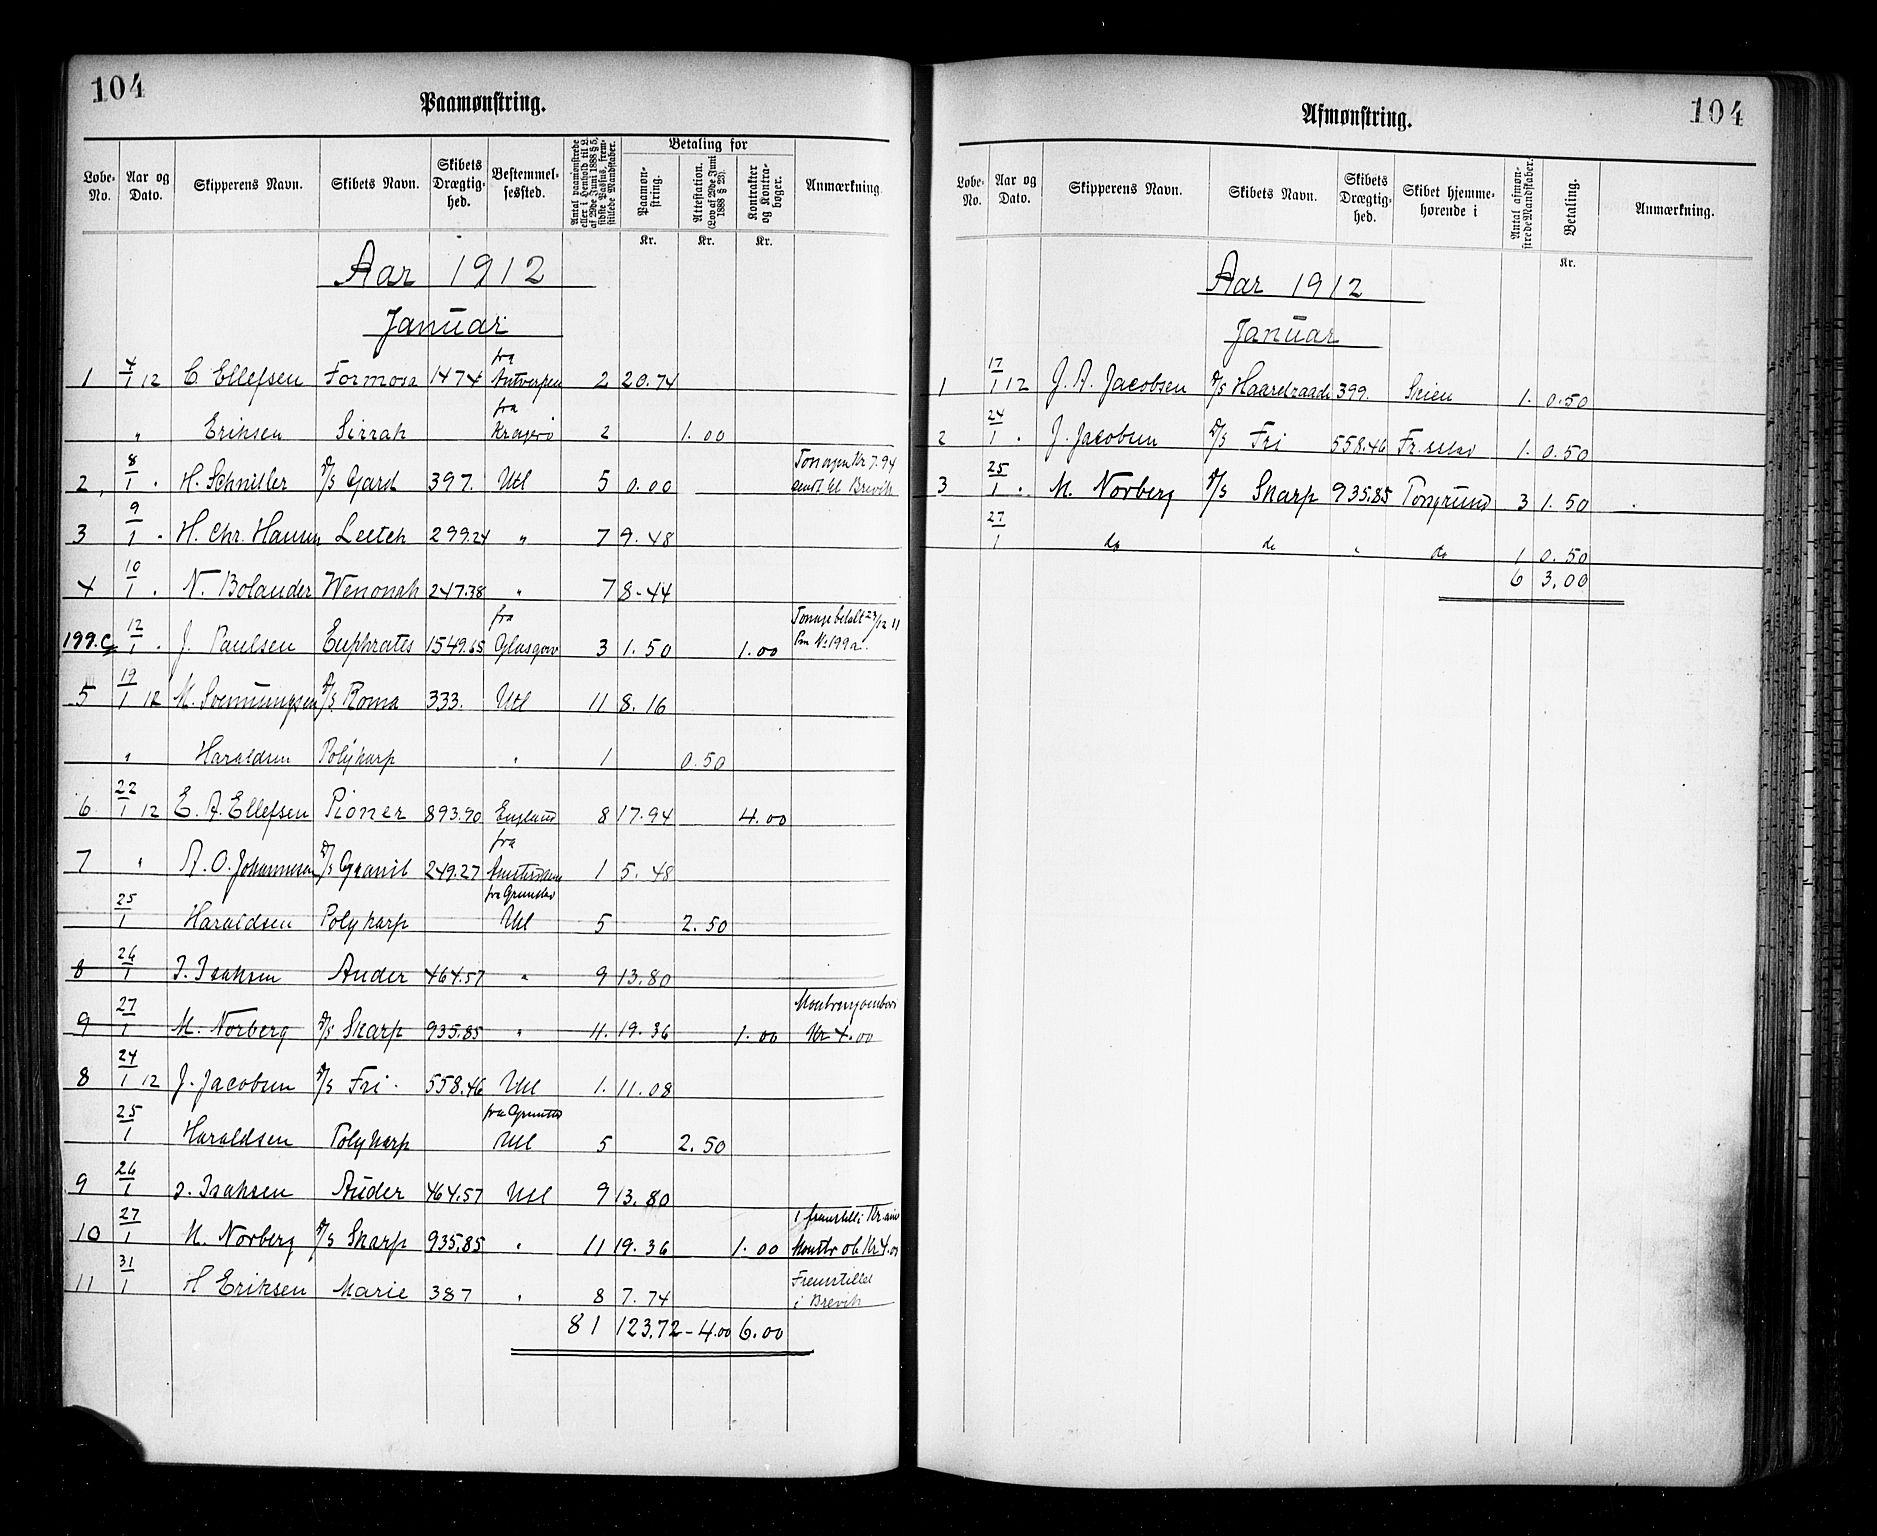 104
Paamønstring.
Løbe-No. Aar og Dato. Skipperens Navn. Skibets Navn. Skibets Drægtig-hed. Bestemmel-sessted. Antal paamønstrede eller i Henhold til L. af 29de Juni 1888 § 5, sidste Passus, frem-stillede Mandskaber. Betaling for Paamøn-string. Attestation. (Lov af 29de Juni 1888 § 23). Kontrakter og Kontra-bøger. Anmærkning.
Kr. Kr. Kr.
Aar 1912
Januar
1 4/1 12 C Ellefsen Formosa 1474 fra Antwerpen 2 20.74
" Eriksen Sirrah fra Kragerø 2 1.00
2, 8/1 . H. Schnitler D/S Gard 397. Utl 5 0.00 Tonagen Kr 7.94 sendt til Brevik
3 9/1 . H. Chr. Hansen Leetch 299.24 " 7 9.48
4 10/1 . N. Bolander Wenonah 247.38 " 7 8-44
199.C 12/1 . J. Paulsen Euphrates 1549.65 fra Glasgow 3 1.50 1.00 Tonage betalt 23/12 11 Pm No 199a.
5 19/1 12 M. Svennungsen D/S. Roma 333. Utl 11 8.16
" Haraldsen Polykarp " 1 0.50
6 22/1 12 E. A. Ellefsen Pioner 893.90 England 8 17.94 4.00
7 " A. O. Johannesen D/S Granit 249.27 fra Amsterdam 1 5.48
25/1 Haraldsen Polykarp fra Grimstad Utl 5 2.50
8 26/1 J. Isaksen Ander 464.57 " 9 13.80
9 27/1 M. Norberg D/S Skarp 935.85 " 11. 19.36 1.00 Kr 4.00
8 24/1 12 J. Jacobsen D/S Fri. 558.46 Utl 1. 11.08
25/1 Haraldsen Polykarp fra Grimstad Utl 5 2.50
9 26/1 J. Isaksen Ander 464.57 Utl 9 13.80
10 27/1 M. Norberg D/S Skarp 935.85 " 11 19.36 1.00 1 fremstill i Kr.ania Kontr ob Kr 4.00
11 31/1 H Eriksen Marie 387 " 8 7.74 Fremstillet i Brevik
81 123.72 - 4.00 6.00
Afmønstring.
104
Løbe-No. Aar og Dato. Skipperens Navn. Skibets Navn. Skibets Drægtig-hed. Skibet hjemme-hørende i Antal afmøn-strede Mandskaber. Betaling. Anmærkning.
Kr.
Aar 1912
Januar
1 17/1 12 J. A. Jacobsen D/S Haardraade 399. Skien 1. 0.50
2 24/1 . J. Jacobsen D/S Fri 558.46 Fr.stad 1. 0.50
3 25/1 . M. Norberg D/S Skarp 935.85 Porsgrund 3 1.50
27/1 do do " do 1 0.50
6 3.00